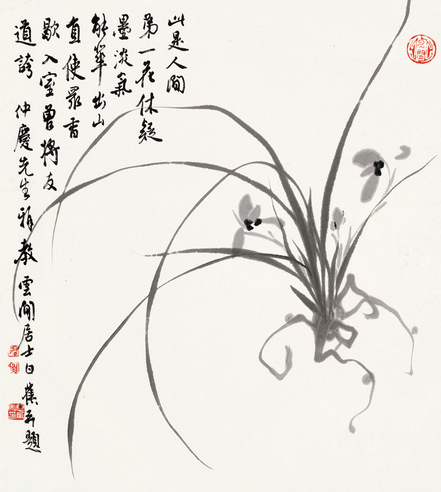 此是人間
第一花休疑
墨淡氣
能華出山
直使羣香
歇入室曾將友
道誇 仲慶先生雅教 雲間居士白蕉並題